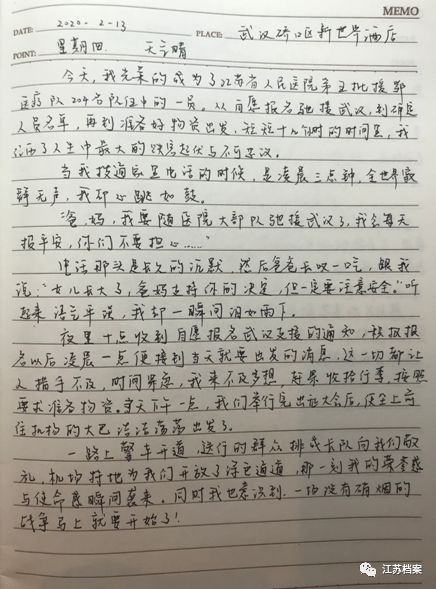 MEMO
DATE: 2020-2-13 PLACE: 武汉硚口区新世界酒店
POINT: 星期四 天气晴
今天,我光荣的成为了江苏省人民医院第五批援鄂
医疗队204名队伍中的一员。从自愿报名驰援武汉,到确定
人员名单,再到准备好物资出发,短短十几个小时的时间里,我
经历了人生中最大的跌宕起伏与不可思议。
当我接通家里电话的时候,是凌晨三点钟,全世界寂
静无声,我却心跳如鼓。
“爸妈,我要随医院大部队驰援武汉了,我会每天
报平安,你们不要担心……”
电话那头是长久的沉默,然后爸爸长叹一口气,跟我
说:“女儿长大了,爸妈支持你的决定,但一定要注意安全。”听
起来语气平淡,我却一瞬间泪如雨下。
夜里十点收到自愿报名武汉支援的通知,积极报
名以后凌晨一点便接到当天就要出发的消息,这一切都让
人措手不及,时间紧急,我来不及多想,赶紧收拾行李,按照
要求准备物资。当天下午一点,我们举行完出征大会后,便坐上前
往机场的大巴浩浩荡荡出发了。
一路上警车开道,送行的群众排成长队向我们敬
礼,机场特地为我们开放了绿色通道,那一刻我的荣誉感
与使命感瞬间袭来,同时我也意识到,一场没有硝烟的
战争马上就要开始了!
江苏档案